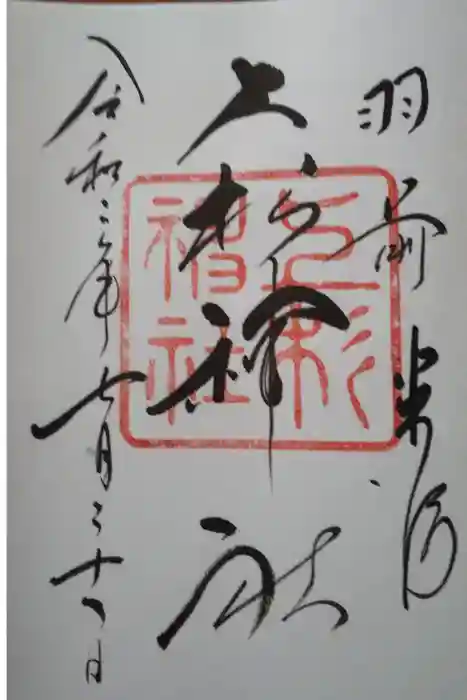 羽前米沢
上杉神社
上杉
神社
令和二年七月三十一日